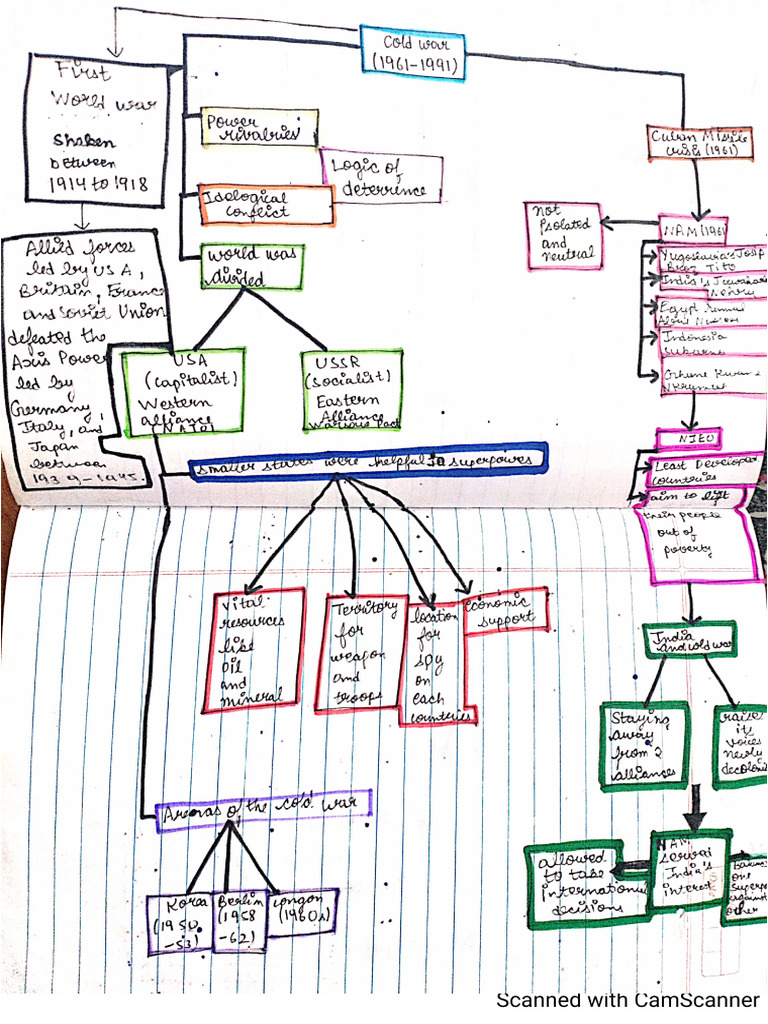 Cold war
(1961-1991)
First
World war
Shaken
between
1914 to 1918
Allied forces
led by USA,
Britain, France
and Soviet Union
defeated the
Axis Power
led by
Germany,
Italy, and
Japan
between
1939-1945.
Power
rivalries
Logic of
deterrence
Idological
conflict
world was
divided
USA
(capitalist)
Western
alliance
(NATO)
USSR
(socialist)
Eastern
Alliance
Warsaw Pact
smaller states were helpful to superpowers
vital
resources
like
oil
and
mineral
Territory
for
weapon
and
troops
location
for
spy
on
each
countries
economic
support
Arenas of the cold war
Korea
(1950
-53)
Berlin
(1958
-62)
(1960s)
Cuban Missile
crisis (1961)
not
Isolated
and
neutral
NAM (1961
Yugoslavia's Josip
Broz Tito
India's
Nehru
Egypt
Indonesia
Nkrumah
NIEO
Least Developed
countries
aim to lift
their people
out of
poverty
India
and cold war
Staying
away
from 2
alliances
raise
its
voices
newly
decoloni
NAM
India's
interest
allowed
to take
international
decisions
one
against
other
Scanned with CamScanner